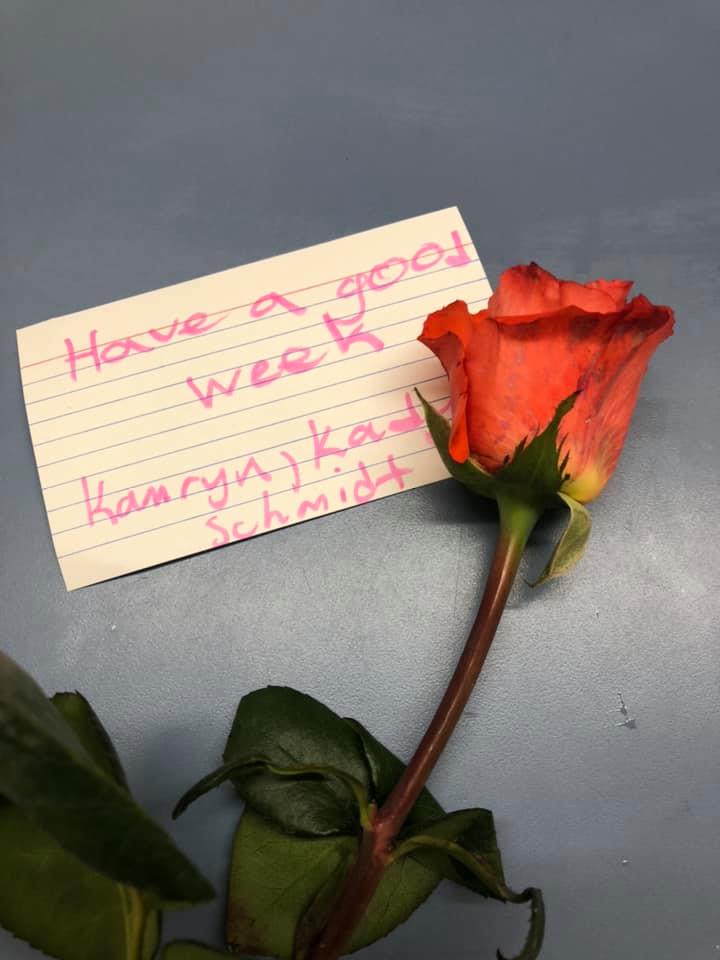 Have a good
week
Kamryn, Kady
Schmidt